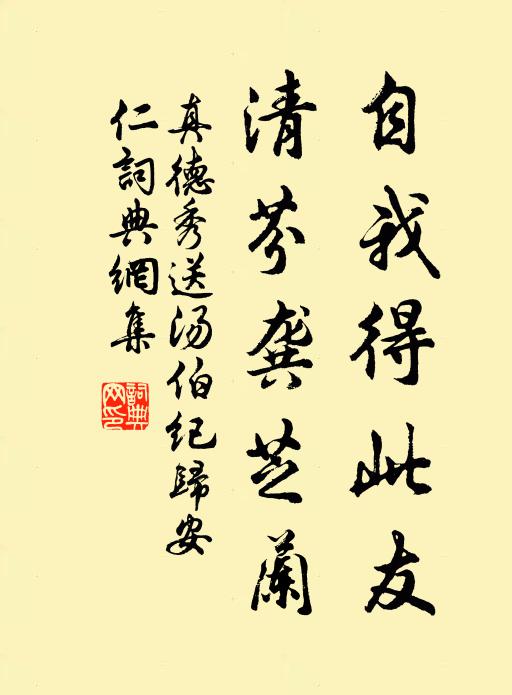 自我得此友
清芬龔芝蘭
真德秀送汤伯纪歸安
仁詞典網集
詞典
网印